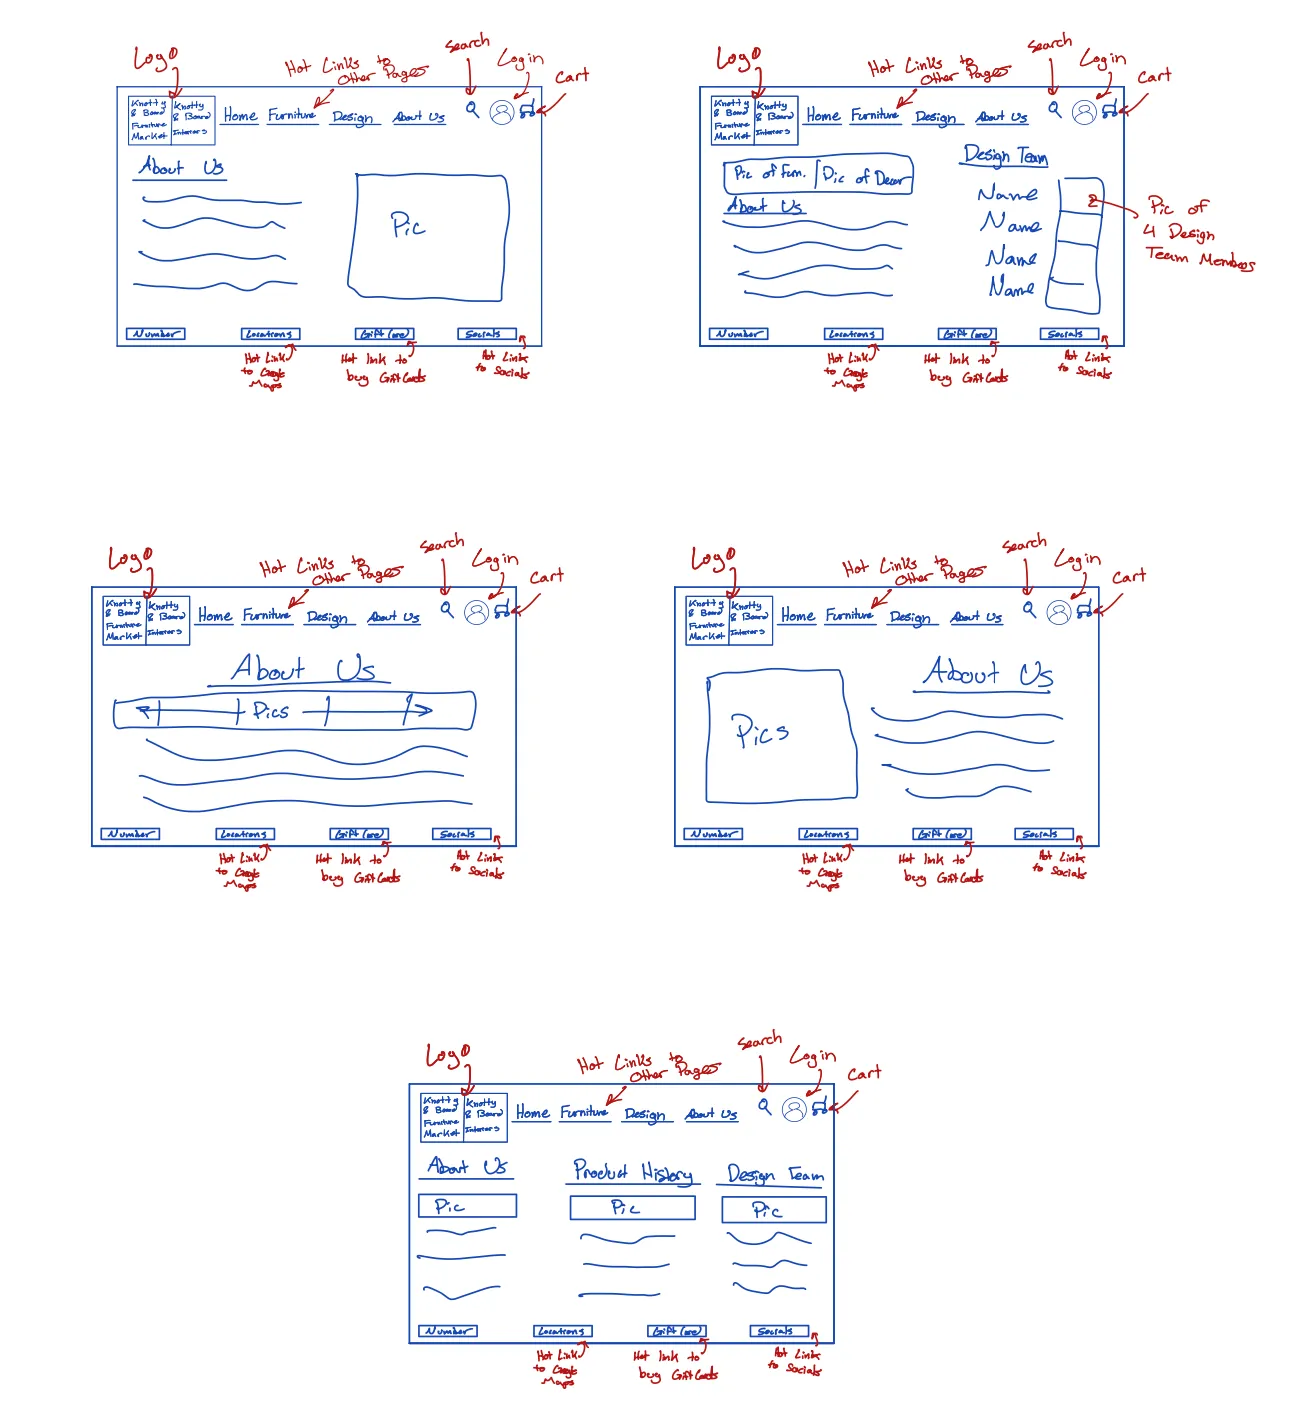 Logo
Hot Links to
Other Pages
Search
Log in
Cart
Knotty
& Board
Furniture
Market
Knotty
& Board
Interiors
Home Furniture Design About Us
About Us
Pic
Number Locations Gift Card Socials
Hot Link
to Google
Maps
Hot link to
buy Gift Cards
Hot Link
to Socials
Logo
Hot Links to
Other Pages
Search
Log in
Cart
Knotty
& Board
Furniture
Market
Knotty
& Board
Interiors
Home Furniture Design About Us
Pic of Furn. Pic of Decor
About Us
Design Team
Name
Name
Name
Name
Pic of
4 Design
Team Members
Number Locations Gift Card Socials
Hot Link
to Google
Maps
Hot link to
buy Gift Cards
Hot Link
to Socials
Logo
Hot Links to
Other Pages
Search
Log in
Cart
Knotty
& Board
Furniture
Market
Knotty
& Board
Interiors
Home Furniture Design About Us
About Us
Pics
Number Locations Gift Card Socials
Hot Link
to Google
Maps
Hot link to
buy Gift Cards
Hot Link
to Socials
Logo
Hot Links to
Other Pages
Search
Log in
Cart
Knotty
& Board
Furniture
Market
Knotty
& Board
Interiors
Home Furniture Design About Us
Pics
About Us
Number Locations Gift Card Socials
Hot Link
to Google
Maps
Hot link to
buy Gift Cards
Hot Link
to Socials
Logo
Hot Links to
Other Pages
Search
Log in
Cart
Knotty
& Board
Furniture
Market
Knotty
& Board
Interiors
Home Furniture Design About Us
About Us Product History Design Team
Pic Pic Pic
Number Locations Gift Card Socials
Hot Link
to Google
Maps
Hot link to
buy Gift Cards
Hot Link
to Socials